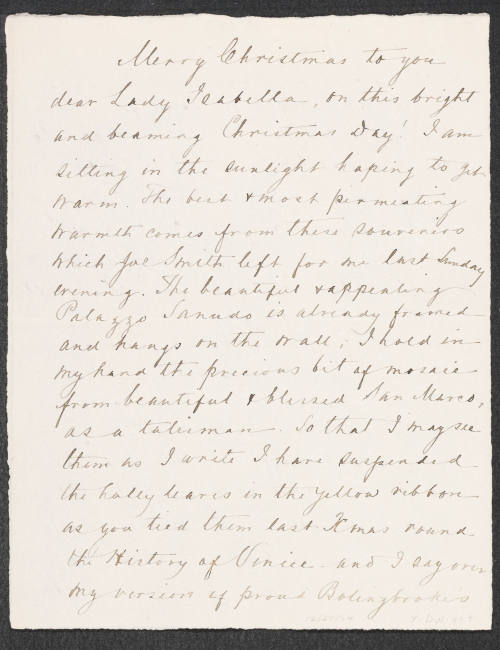 Merry Christmas to you
dear Lady Isabella, on this bright
and beaming Christmas Day! I am
sitting in the sunlight hoping to get
warm. The best & most permeating
warmth comes from these souvenirs
which Joe Smith left for me last Sunday
evening. The beautiful & appealing
Palazzo Sanudo is already framed
and hangs on the wall; I hold in
my hand the precious bit of mosaic
from beautiful & blessed San Marco,
as a talisman. So that I may see
them as I write I have suspended
the holly leaves in the yellow ribbon
as you tied them last Xmas round
the History of Venice and I say over
my version of proud Bolingbroke's